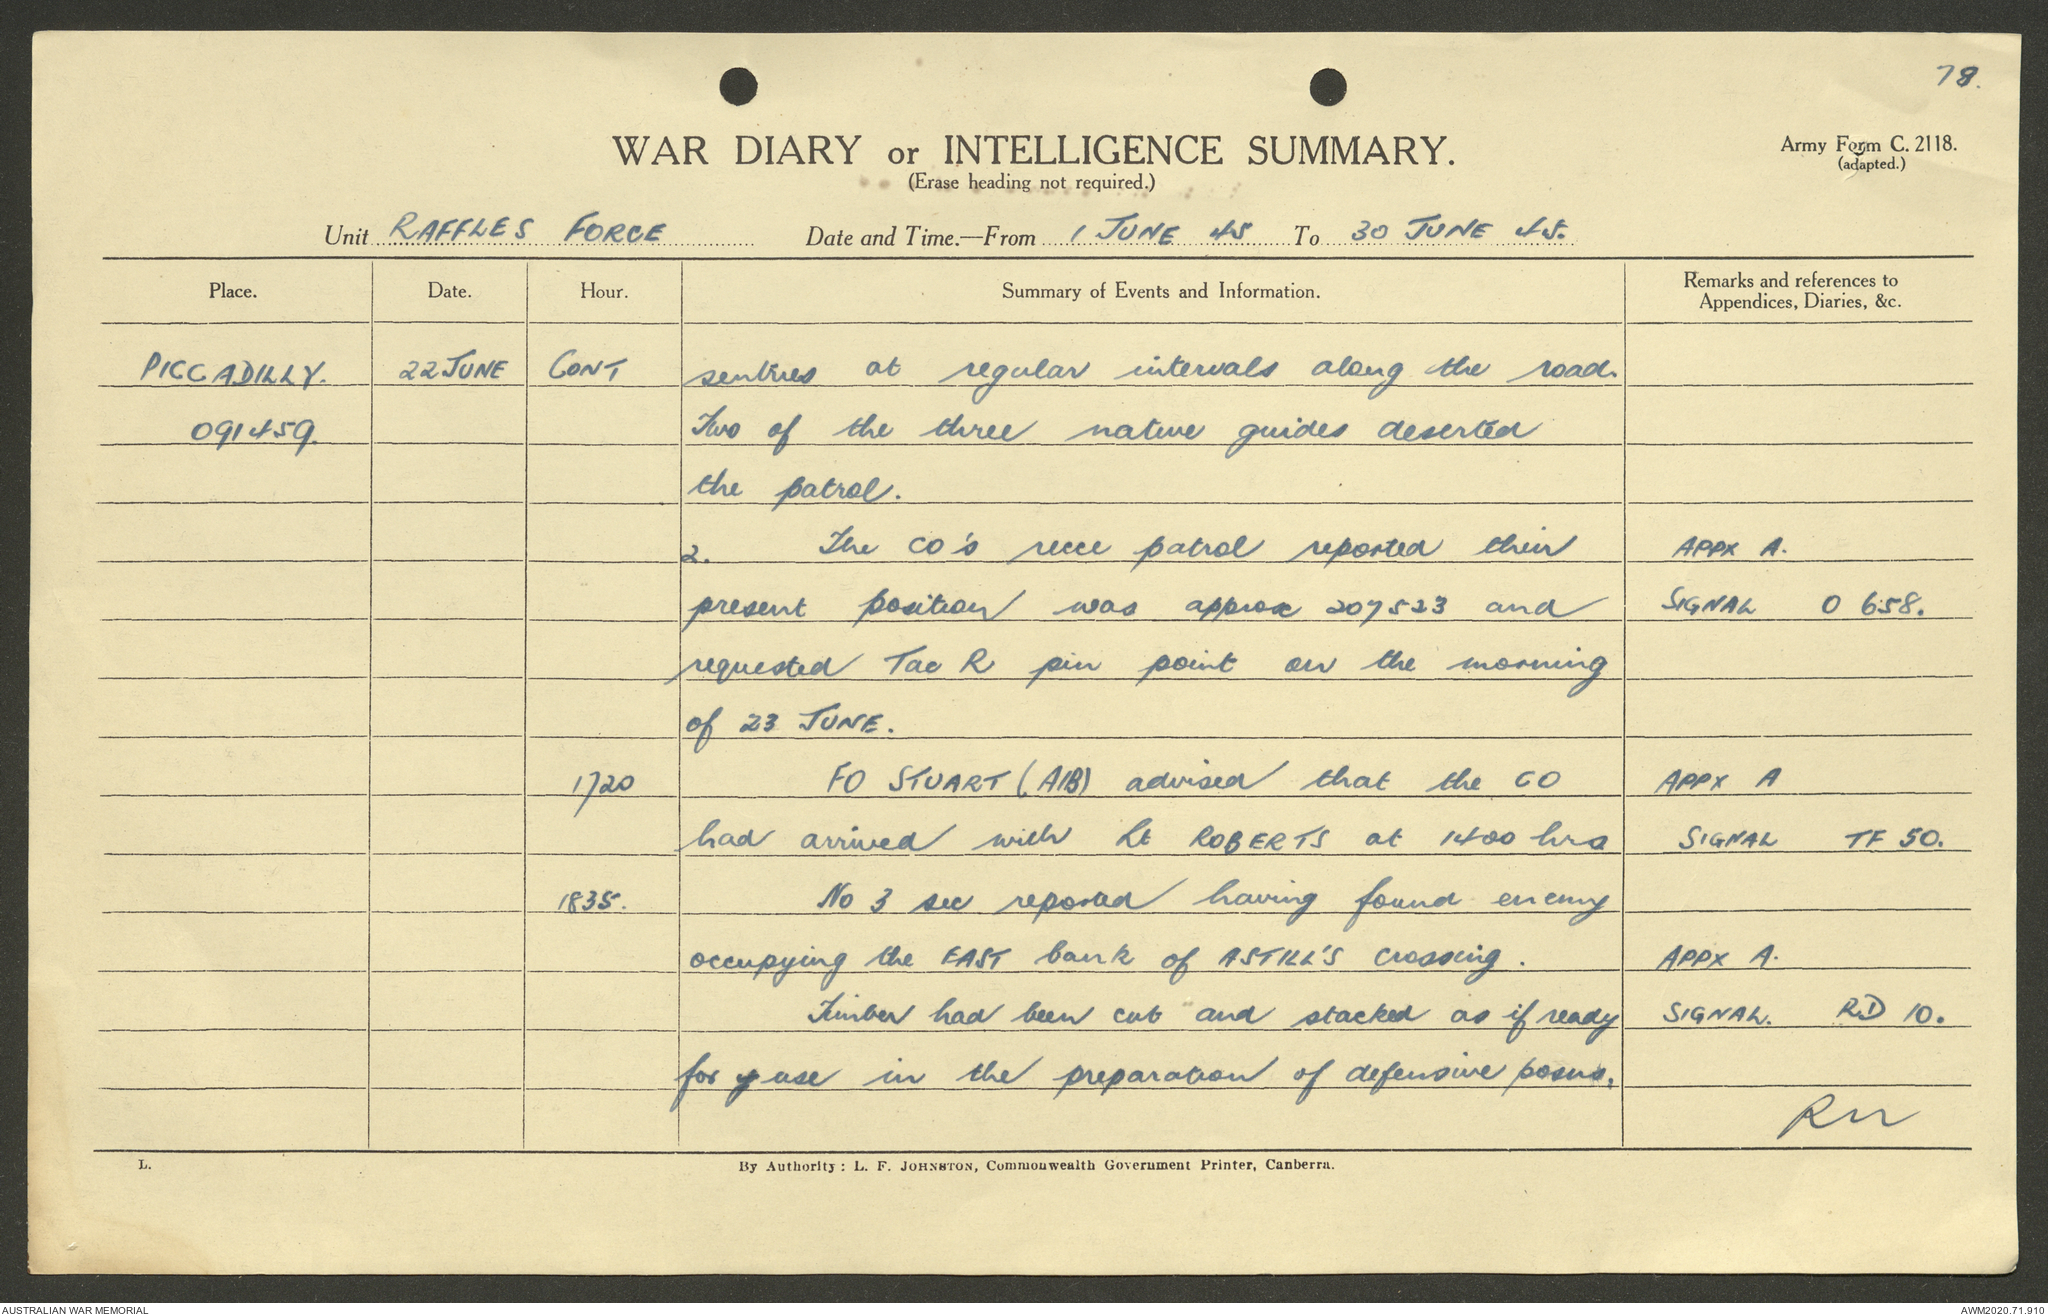 78.
WAR DIARY or INTELLIGENCE SUMMARY.
Army Form C. 2118.
(Erase heading not required.)
(adapted.)
Unit RAFFLES FORCE Date and Time.—From 1 JUNE 45 To 30 JUNE 45.
Place. Date. Hour. Summary of Events and Information. Remarks and references to
Appendices, Diaries, &c.
PICCADILLY. 22 JUNE CONT sentries at regular intervals along the road.
091459. Two of the three native guides deserted
the patrol.
2. The CO's recce patrol reported their APPX A.
present position was approx 207523 and SIGNAL O 658.
requested Tac R pin point on the morning
of 23 JUNE.
1720 FO STUART (AIB) advised that the CO APPX A
had arrived with Lt ROBERTS at 1400 hrs SIGNAL TF 50.
1835. No 3 sec reported having found enemy
occupying the EAST bank of ASTILL'S crossing. APPX A.
Timber had been cut and stacked as if ready SIGNAL. RD 10.
for use in the preparation of defensive posns.
L. By Authority: L. F. JOHNSTON, Commonwealth Government Printer, Canberra.
AUSTRALIAN WAR MEMORIAL AWM2020.71.910